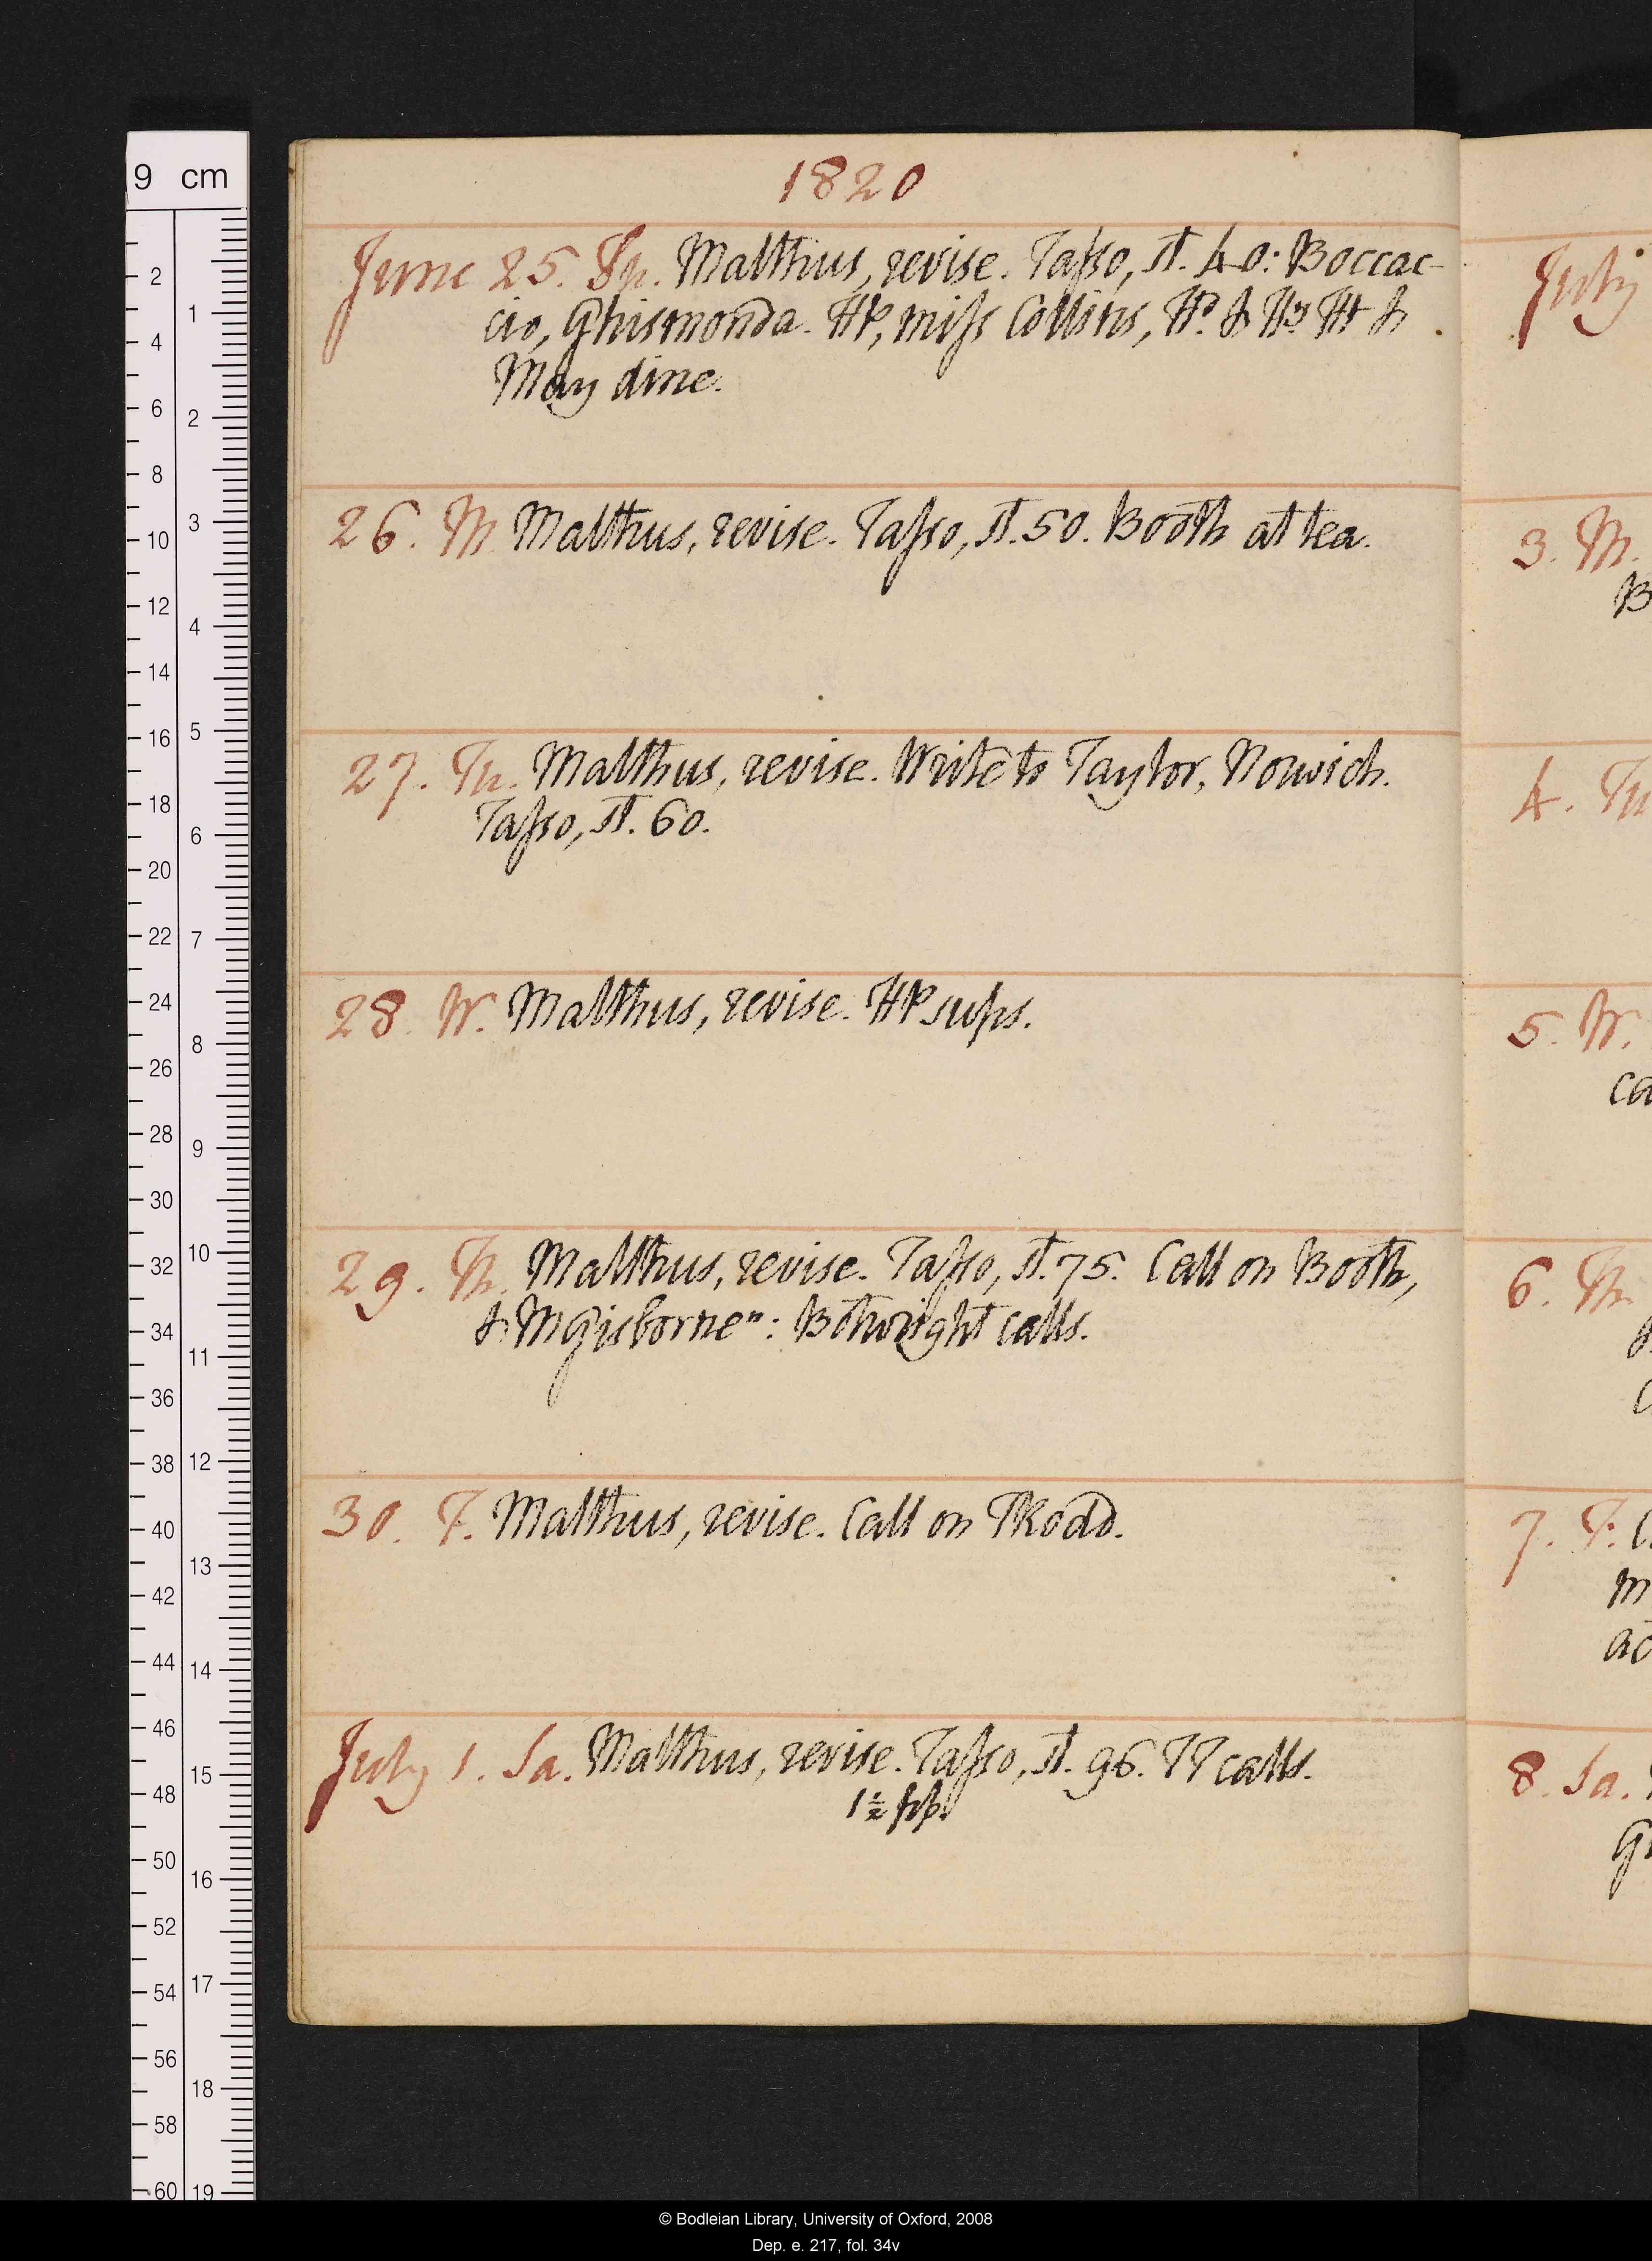 1820
June 25. Su. Malthus, revise. Tasso, st. 40: Boccac-
cio, Ghismonda. HR, miss Collins,
May dine.
26. M. Malthus, revise. Tasso, st. 50. Booth at tea.
27. Tu. Malthus, revise. Write to Taylor, Norwich.
Tasso, st. 60.
28. W. Malthus, revise. HR sups.
29. Th. Malthus, revise. Tasso, st. 75. Call on Booth,
& M Gisborne n: Bothwright calls.
30. F. Malthus, revise. Call on TRodd.
July 1. Sa. Malthus, revise. Tasso, st. 96. TT calls.
1½ pp.
July
3. M.
B
4. Tu
5. W.
ca
6. Th.
7. F.
m
ad
8. Sa.
G
9 cm
© Bodleian Library, University of Oxford, 2008
Dep. e. 217, fol. 34v